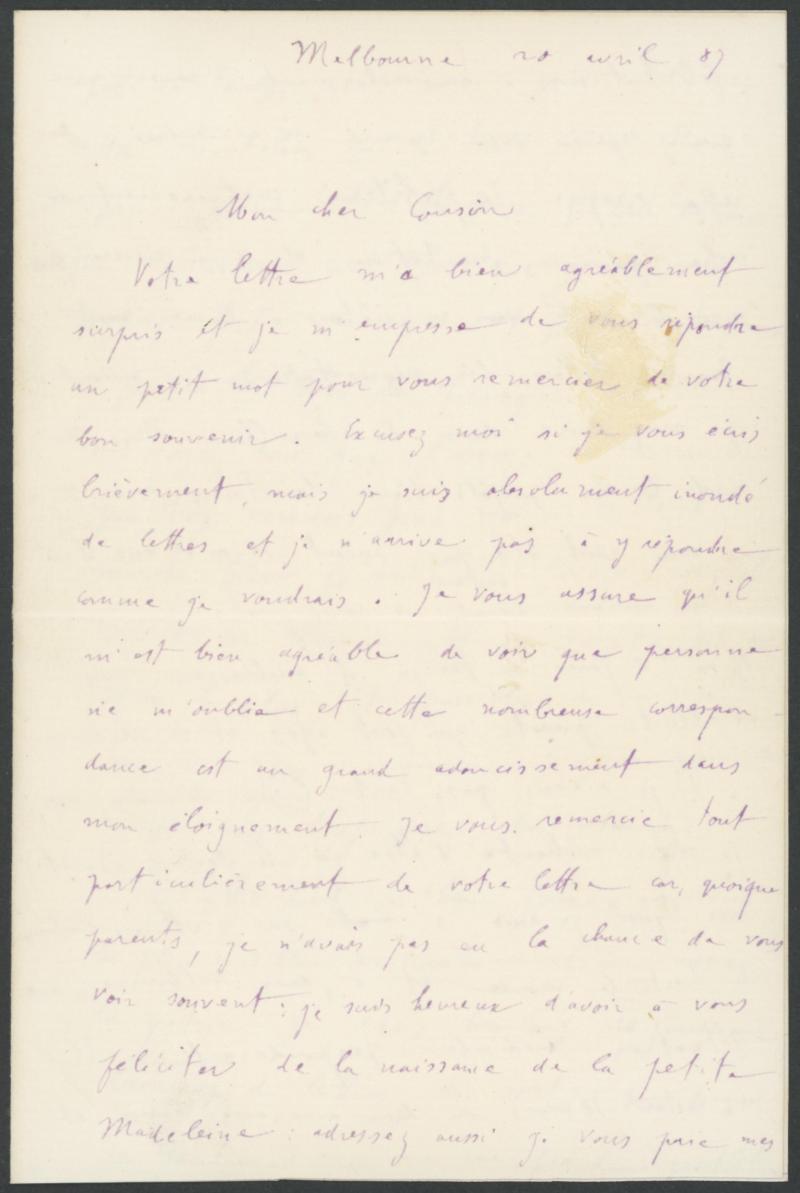 Melbourne 20 avril 87
Mon cher Cousin
Votre lettre m'a bien agréablement
surpris et je m'empresse de vous répondre
un petit mot pour vous remercier de votre
bon souvenir. Excusez moi si je vous écris
brièvement, mais je suis absolument inondé
de lettres et je n'arrive pas à y répondre
comme je voudrais. Je vous assure qu'il
m'est bien agréable de voir que personne
ne m'oublie et cette nombreuse correspon-
dance est un grand adoucissement dans
mon éloignement. Je vous remercie tout
particulièrement de votre lettre car, quoique
parents, je n'avais pas eu la chance de vous
voir souvent : je suis heureux d'avoir à vous
féliciter de la naissance de la petite
Madeleine : adressez aussi je vous prie mes